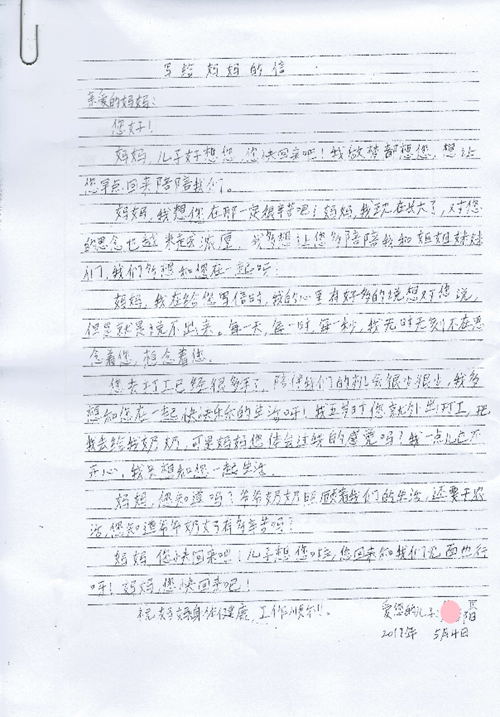 写给妈妈的信
亲爱的妈妈：
您好！
妈妈，儿子好想您，您快回来吧！我做梦都想您，想让
您早点回来陪陪我们。
妈妈，我想您在那一定很辛苦吧？妈妈，我现在长大了，对您
的思念也越来越浓厚，我多想让您多陪陪我和姐姐妹妹
们，我们多想和您在一起呀！
妈妈，我在给您写信时，我的心里有好多的话想对您说，
但是就是说不出来。每一天，每一时，每一秒，我无时无刻不在思
念着您，想念着您。
您去打工已经很多年了，陪伴我们的机会很少很少，我多
想和您在一起快快乐乐的生活呀！我五岁时您就外出打工，把
我丢给我奶奶，可是妈妈您体会过我的感觉吗？我一点儿也不
开心，我只想和您一起生活。
妈妈，您知道吗？爷爷奶奶照顾着我们的生活，还要干农
活，您知道爷爷奶奶有多辛苦吗？
妈妈，您快回来吧！儿子想您啦，您回来和我们见面也行
呀！妈妈，您快回来吧！
祝妈妈身体健康，工作顺利！。
爱您的儿子：阳
2017年 5月4日